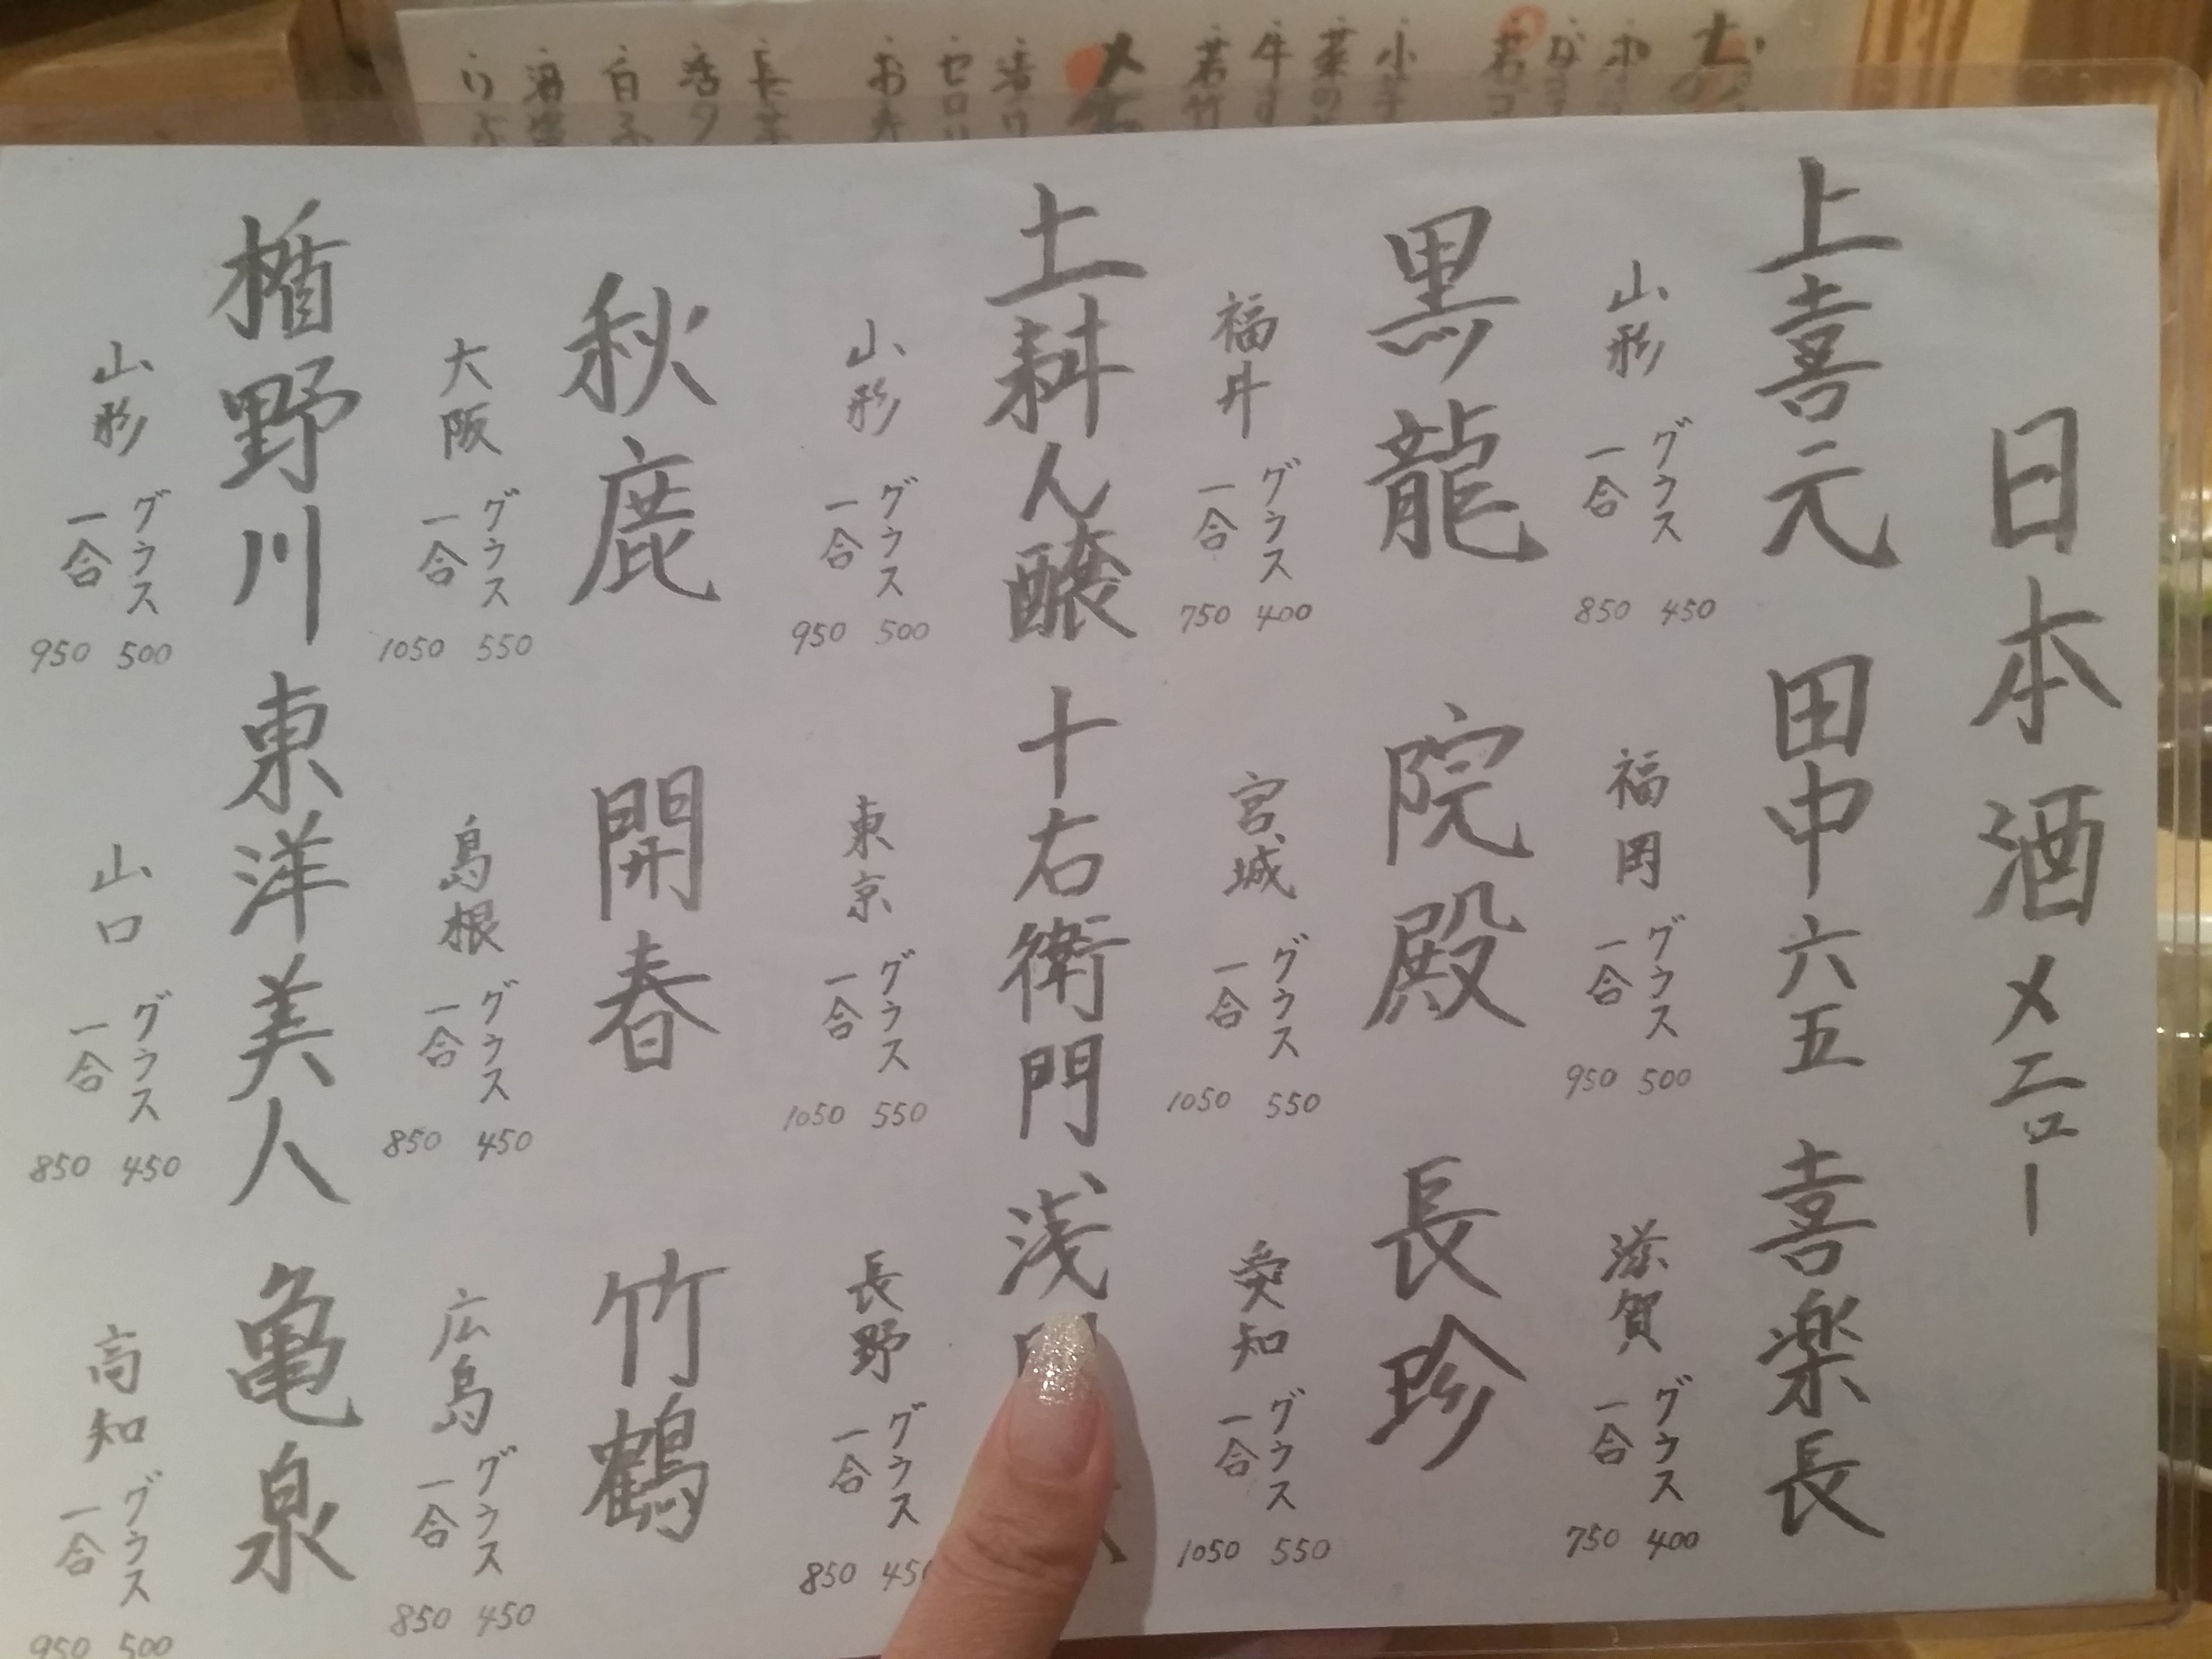 日本酒メニュー
上喜元
山形
グラス 450
一合 850
田中六五
福岡
グラス 500
一合 950
喜楽長
滋賀
グラス 400
一合 750
黒龍
福井
グラス 400
一合 750
院殿
宮城
グラス 550
一合 1050
長珍
愛知
グラス 550
一合 1050
山形
グラス 500
一合 950
十右衛門
東京
グラス 550
一合 1050
浅
長野
グラス 45
一合 850
秋鹿
大阪
グラス 550
一合 1050
開春
島根
グラス 450
一合 850
竹鶴
広島
グラス 450
一合 850
楯野川
山形
グラス 500
一合 950
東洋美人
山口
グラス 450
一合 850
亀泉
高知
グラス 500
一合 950